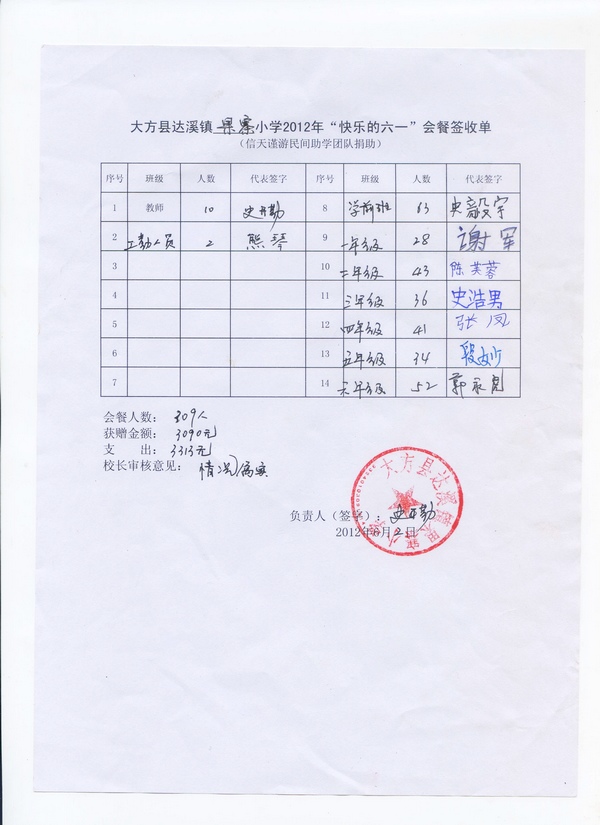 大方县达溪镇果寨小学2012年“快乐的六一”会餐签收单
（信天谨游民间助学团队捐助）
序号 班级 人数 代表签字 序号 班级 人数 代表签字
1 教师 10 史开勤 8 学前班 63 史毅宇
2 工勤人员 2 熊琴 9 一年级 28 谢军
3 10 二年级 43 陈芙蓉
4 11 三年级 36 史浩男
5 12 四年级 41 张凤
6 13 五年级 34 段
7 14 六年级 52 郭永亮
会餐人数： 309人
获赠金额： 3090元
支 出： 3313元
校长审核意见： 情况属实
负责人（签字）：史开勤
2012年6月2日
大方县达溪镇果寨小学